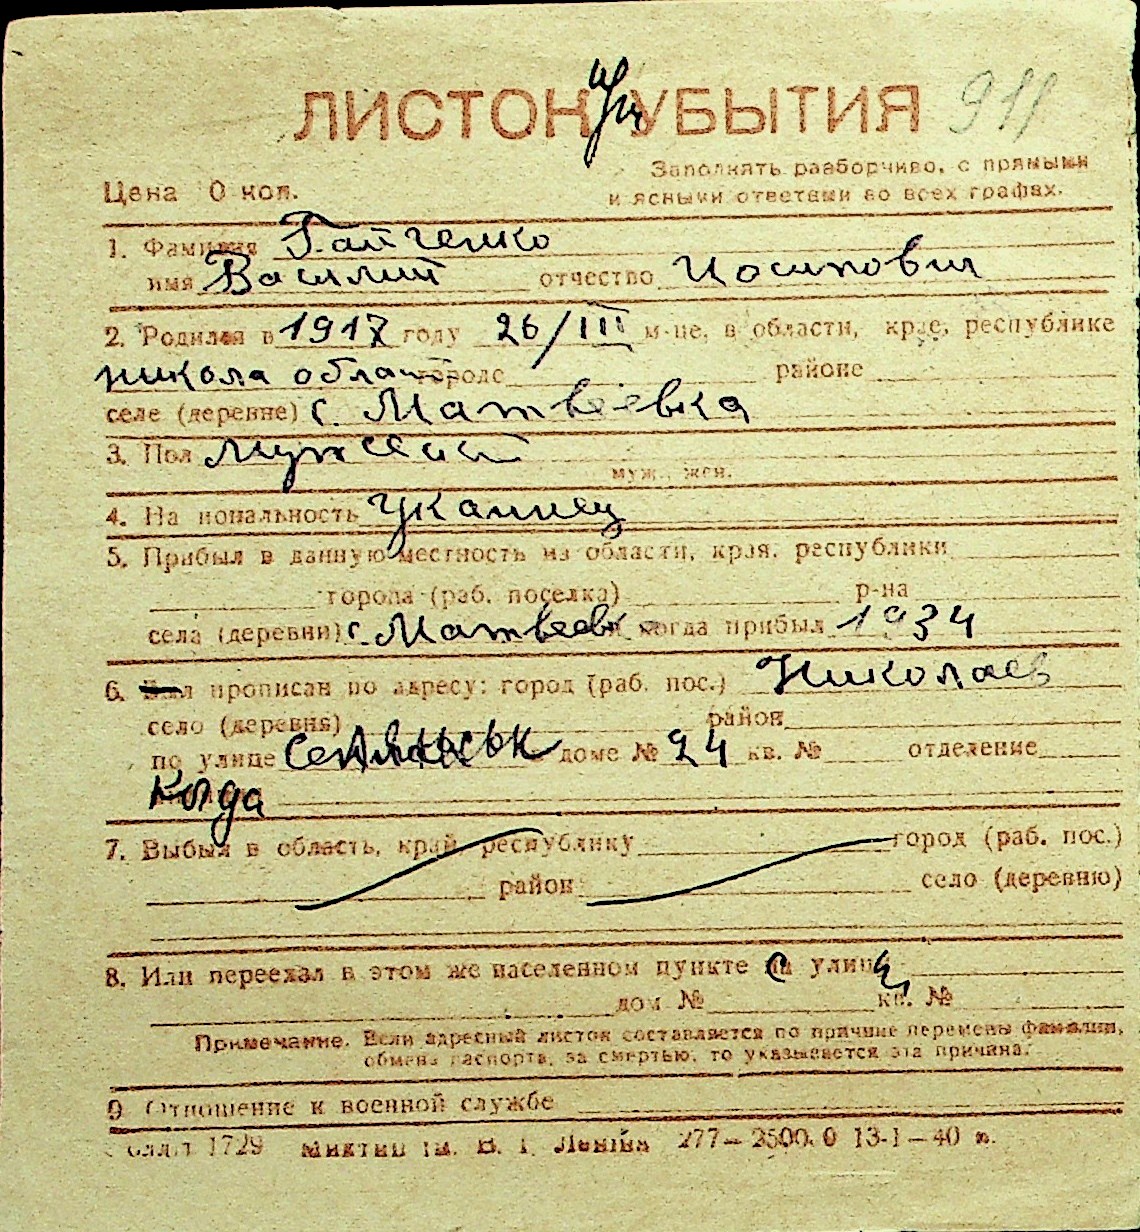 ЛИСТОК УБЫТИЯ 911
Заполнять разборчиво, с прямыми
Цена 0 коп. и ясными ответами во всех графах.
1. Фамилия Гапченко
имя Василий отчество Иосипович
2. Родился в 1917 году 26/III м-це, в области, крае, республике
никола област городе районе
селе (деревне) с. Матвеевка
3. Пол мужский
муж., жен.
4. На иональность Украинец
5. Прибыл в данную местность из области, края, республики
города (раб. поселка) р-на
села (деревни) с. Матвеевк когда прибыл 1934
6. прописан по адресу: город (раб. пос.) Николаев
село (деревня) район
по улице доме № 24 кв. № отделение
Когда
7. Выбыл в область, край, республику город (раб. пос.)
район село (деревню)
8. Или переехал в этом же населенном пункте с улицы
дом № кв. №
Примечание. Если адресный листок составляется по причине перемены фамилии,
обмена паспорта, за смертью, то указывается эта причина.
9 Отношение к военной службе
1729 В. І. Леніна 277–2500.0 13-1–40 р.